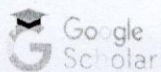 Google
Scholar